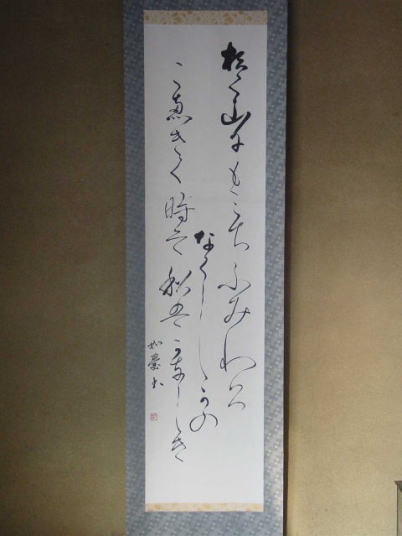 於く山にもみちふみわけ
なくしかの
こ恵きく時そ秋はかなしき